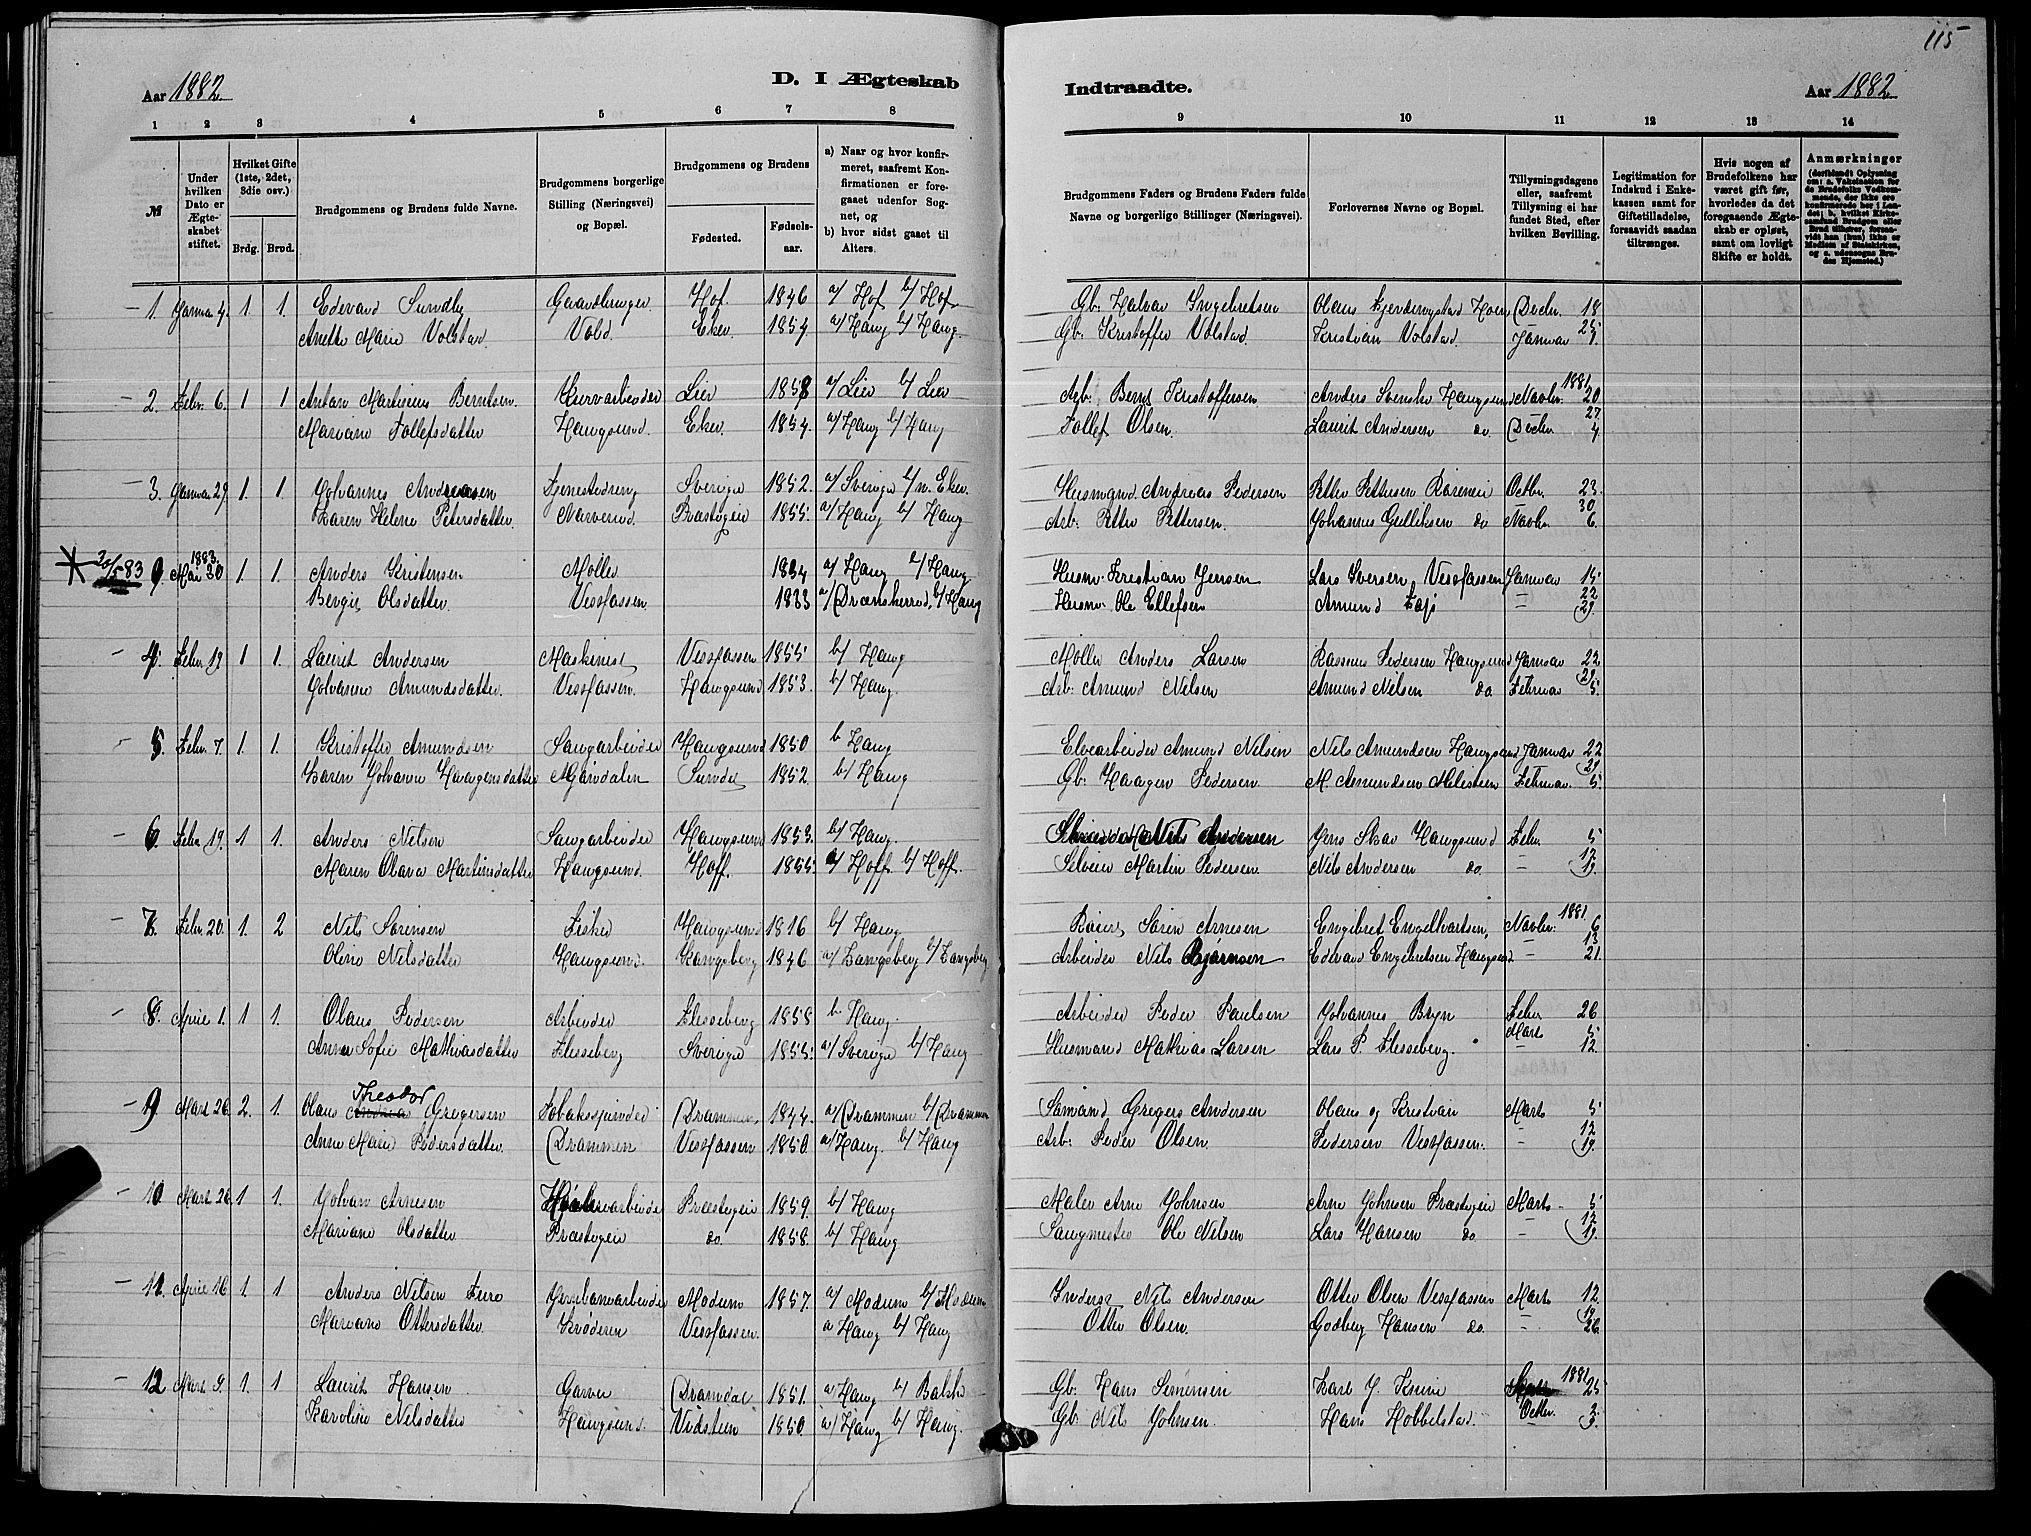 115
Aar 1882.
D. I Ægteskab
Indtraadte.
Aar 1882
1 2 3 4 5 6 7 8 9 10 11 12 13 14
№
Under hvilken Dato er Ægteskabet stiftet.
Hvilket Gifte (1ste, 2det, 3die osv.)
Brdg. Brud.
Brudgommens og Brudens fulde Navne.
Brudgommens borgerlige Stilling (Næringsvei) og Bopæl.
Brudgommens og Brudens
Fødested. Fødselsaar.
a) Naar og hvor konfirmeret, saafremt Konfirmationen er foregaaet udenfor Sognet, og
b) hvor sidst gaaet til Alters.
Brudgommens Faders og Brudens Faders fulde Navne og borgerlige Stillinger (Næringsvei).
Forlovernes Navne og Bopæl.
Tillysningsdagene eller, saafremt Tillysning ei har fundet Sted, efter hvilken Bevilling.
Legitimation for Indskud i Enkekassen samt for Giftetilladelse, forsaavidt saadan tiltrænges.
Hvis nogen af Brudefolkene har været gift før, hvorledes da det foregaaende Ægteskab er opløst, samt om lovligt Skifte er holdt.
Anmærkninger
(deriblandt Oplysning om: a. Vakcination for de Brudefolks Vedkommende, der ikke ere konfirmerede her i Landet; b. hvilket Kirkesamfund Brudgom eller Brud tilhører, forsaavidt han (hun) ikke er Medlem af Statskirken, og c. udensogns Brudes Hjemsted.)
1. Januar 4. 1. 1. Edevard Sundby Gaardbruger Hof. 1846 a/ Hof b/ Hof Gb. Halvor Ingebretsen Olaus Gjerdrngstad Hoen Decbr. 18
Anette Marie Volstad. Vold. Eker. 1854 a/ Haug b/ Haug. Gb: Kristoffer Volstad. Kristian Volstad. Januar 25 1.
2. Febr. 6. 1 1 Antan Martinius Berntsen. Kurvarbeider Lier 1858 a/ Lier b/ Lier Arb: Bernt Kristoffersen Anders Svenske Haugsund Novbr. 1881 20
Mariane Tollefsdatter Haugsund. Eker. 1854. a/ Haug b/ Haug Tollef Olsen. Laurit Andersen do. Decbr 27 4
3. Januar 29. 1. 1. Johannes Andreasen Tjenestedreng Sverige 1852. a/ Sverige b/ n. Eker. Husmand Andreas Pedersen Petter Pettersen Rørenei Octbr. 23.
Karen Helene Petersdatter. Narverud. Præstegei 1855. a/ Haug b/ Haug Arb: Petter Pettersen. Johannes Gulliksen do Novbr 30 6.
20/5 83 9. 1883. Mai 20 1. 1. Anders Kristensen Møller 1834 a/ Haug b/ Haug Husm. Kristian Jensen Lars Iversen Vestfossen Januar 15
Bergit Olsdatter. Vestfossen. 1833 a/ Dramsherred, b/ Haug Husm. Ole Ellefsen Amund Lajs " 22 29.
4. Febr. 19 1 1. Laurit Andersen Maskinist Vestfossen 1855 b/ Haug Møller Anders Larsen Rasmus Pedersen Haugsund Januar 22
Johanne Amundsdatter. Vestfossen. Haugsund 1853. b/ Haug. Arb: Amund Nilsen Amund Nilsen do. Februar 29 5.
5. Febr. 7. 1. 1. Kristoffer Amundsen Saugarbeider Haugsund 1850 b Haug Elvearbeider Amund Nilsen Nils Amundsen Haugsund Januar 22.
Karen Johanne Haagensdatter Mjøndalen Sunde 1852 b/ Haug Gb: Haagen Pedersen. M. Asmundsen Milesteen Februar. 29 5.
6. Febr 19. 1 1. Anders Nilsen Saugarbeider Haugsund 1853. b/ Haug. Nils Andersen Jens Skar Haugsund Febr. 5
Maren Olava Martinsdatter Haugsund. Hoff. 1855. a/ Hoff b/ Hoff. Selveier Martin Pedersen Nils Andersen do. " 12 19.
7. Febr. 20. 1. 2 Nils Sørensen Fisker Haugsund 1816 b/ Haug Roiers Søren Arnesen Engebret Engelhartsen, Novbr: 1881. 6
Oline Nilsdatter Haugsund. Kongsberg 1846 a/ Kongsberg b/ Kongsberg Arbeider Nils Bjørnsen Edevard Engebretsen Haugsund " 13 21.
8. April 1. 1 1. Olaus Pedersen Arbeider Flesseberg 1858 b Haug. Arbeider Peder Paulsen Johannes Bryn Febr 26
Anne Sofie Mathiasdatter Flesseberg Sverige 1855. a/ Sverige b/ Haug Husmand Mathias Larsen Lars P. Flesseberg. Mart 5 " 12.
9 Mart 26. 2. 1. Olaus Theodor Gregersen Tobaksspinder Drammen 1844. a/ Drammen b/ Drammen Sømand Gregers Andersen Olaus og Kristian Marts 5
Anne Marie Pedersdatter. Drammen Vestfossen 1850. a/ Haug. b/ Haug Arb: Peder Olsen. Pedersen Vestfossen. " 12 19.
10 Mart. 26. 1 1. Johan Arnesen Præstegei 1859. b/ Haug Maler Arne Johnsen Arne Johnsen Præstegei Marts 5
Mariane Olsdatter Præstegei do. 1858. b/ Haug Saugmester Ole Nilsen Lars Hansen do " 12 19.
11. April 16 1. 1 Anders Nilsen Furo Jernbanearbeider Modum 1857. a/ Modum b/ Modum Inderst Nils Andersen Otter Olsen Vestfossen Marts 12.
Mariane Ottersdatter. Krøderen Vestfossen. a Haug b/ Haug Otter Olsen. Godberg Hansen do. " 19 26.
12 Mart 9. 1. 1 Laurit Hansen Garver Dramdal 1851. a/ Haug b/ Balske Gb: Hans Simensen Karl J. Knive 1881 25
Karoline Nilsdatter Haugsund. Vidsteen 1850. a/ Haug b/ Haug. Gb Nils Johnsen. Hans Hobbelstad. Octbr. 2. 9.